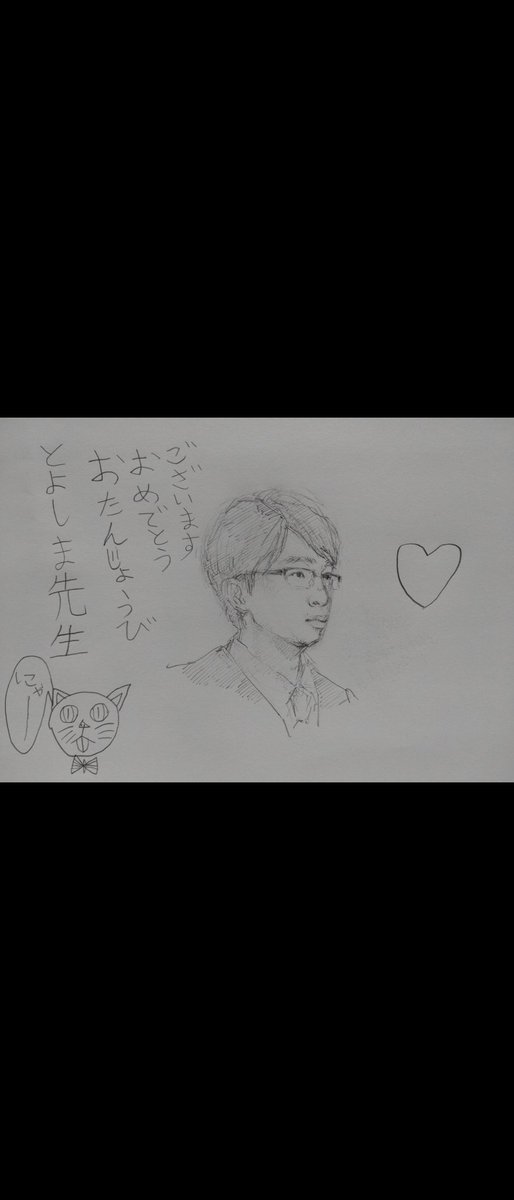 とよしま先生
おたんじょうび
おめでとう
ございます
にゃー